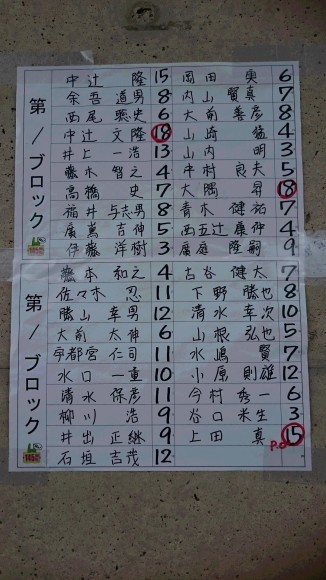 第1ブロック
中辻 隆 15 岡田 実 6
余吾 道男 8 内山 賢真 7
西尾 聡史 6 大前 善彦 8
中辻 文隆 18 山崎 猛 4
井上 一浩 13 山内 明 3
藤木 智之 4 中村 良夫 5
高橋 史 7 大隅 昇 18
福井 与志男 8 青木 健祐 7
廣萬 吉伸 5 西五辻 康伸 4
伊藤 洋樹 3 廣庭 隆嗣 9
第1ブロック
藤本 和之 4 古谷 健太 7
佐々木 忍 11 下野 勝也 8
勝山 幸男 12 清水 幸次 10
大前 太伸 6 山根 弘也 5
宇都宮 仁司 11 水嶋 賢 7
水口 一重 10 小原 則雄 12
清水 保彦 11 今村 秀一 6
柳川 浩 9 谷口 米生 3
井出 正継 9 上田 真 15
石垣 吉茂 12 P.O